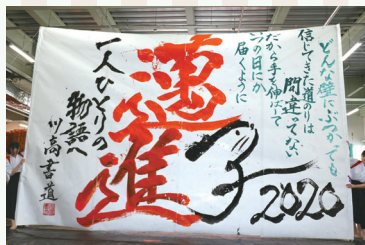 どんな壁にぶつかっても
信じてきた道のりは
間違ってない
だから手を伸ばして
いつの日にか
届くように
子
2020
進
一人ひとりの
物語へ
川高書道